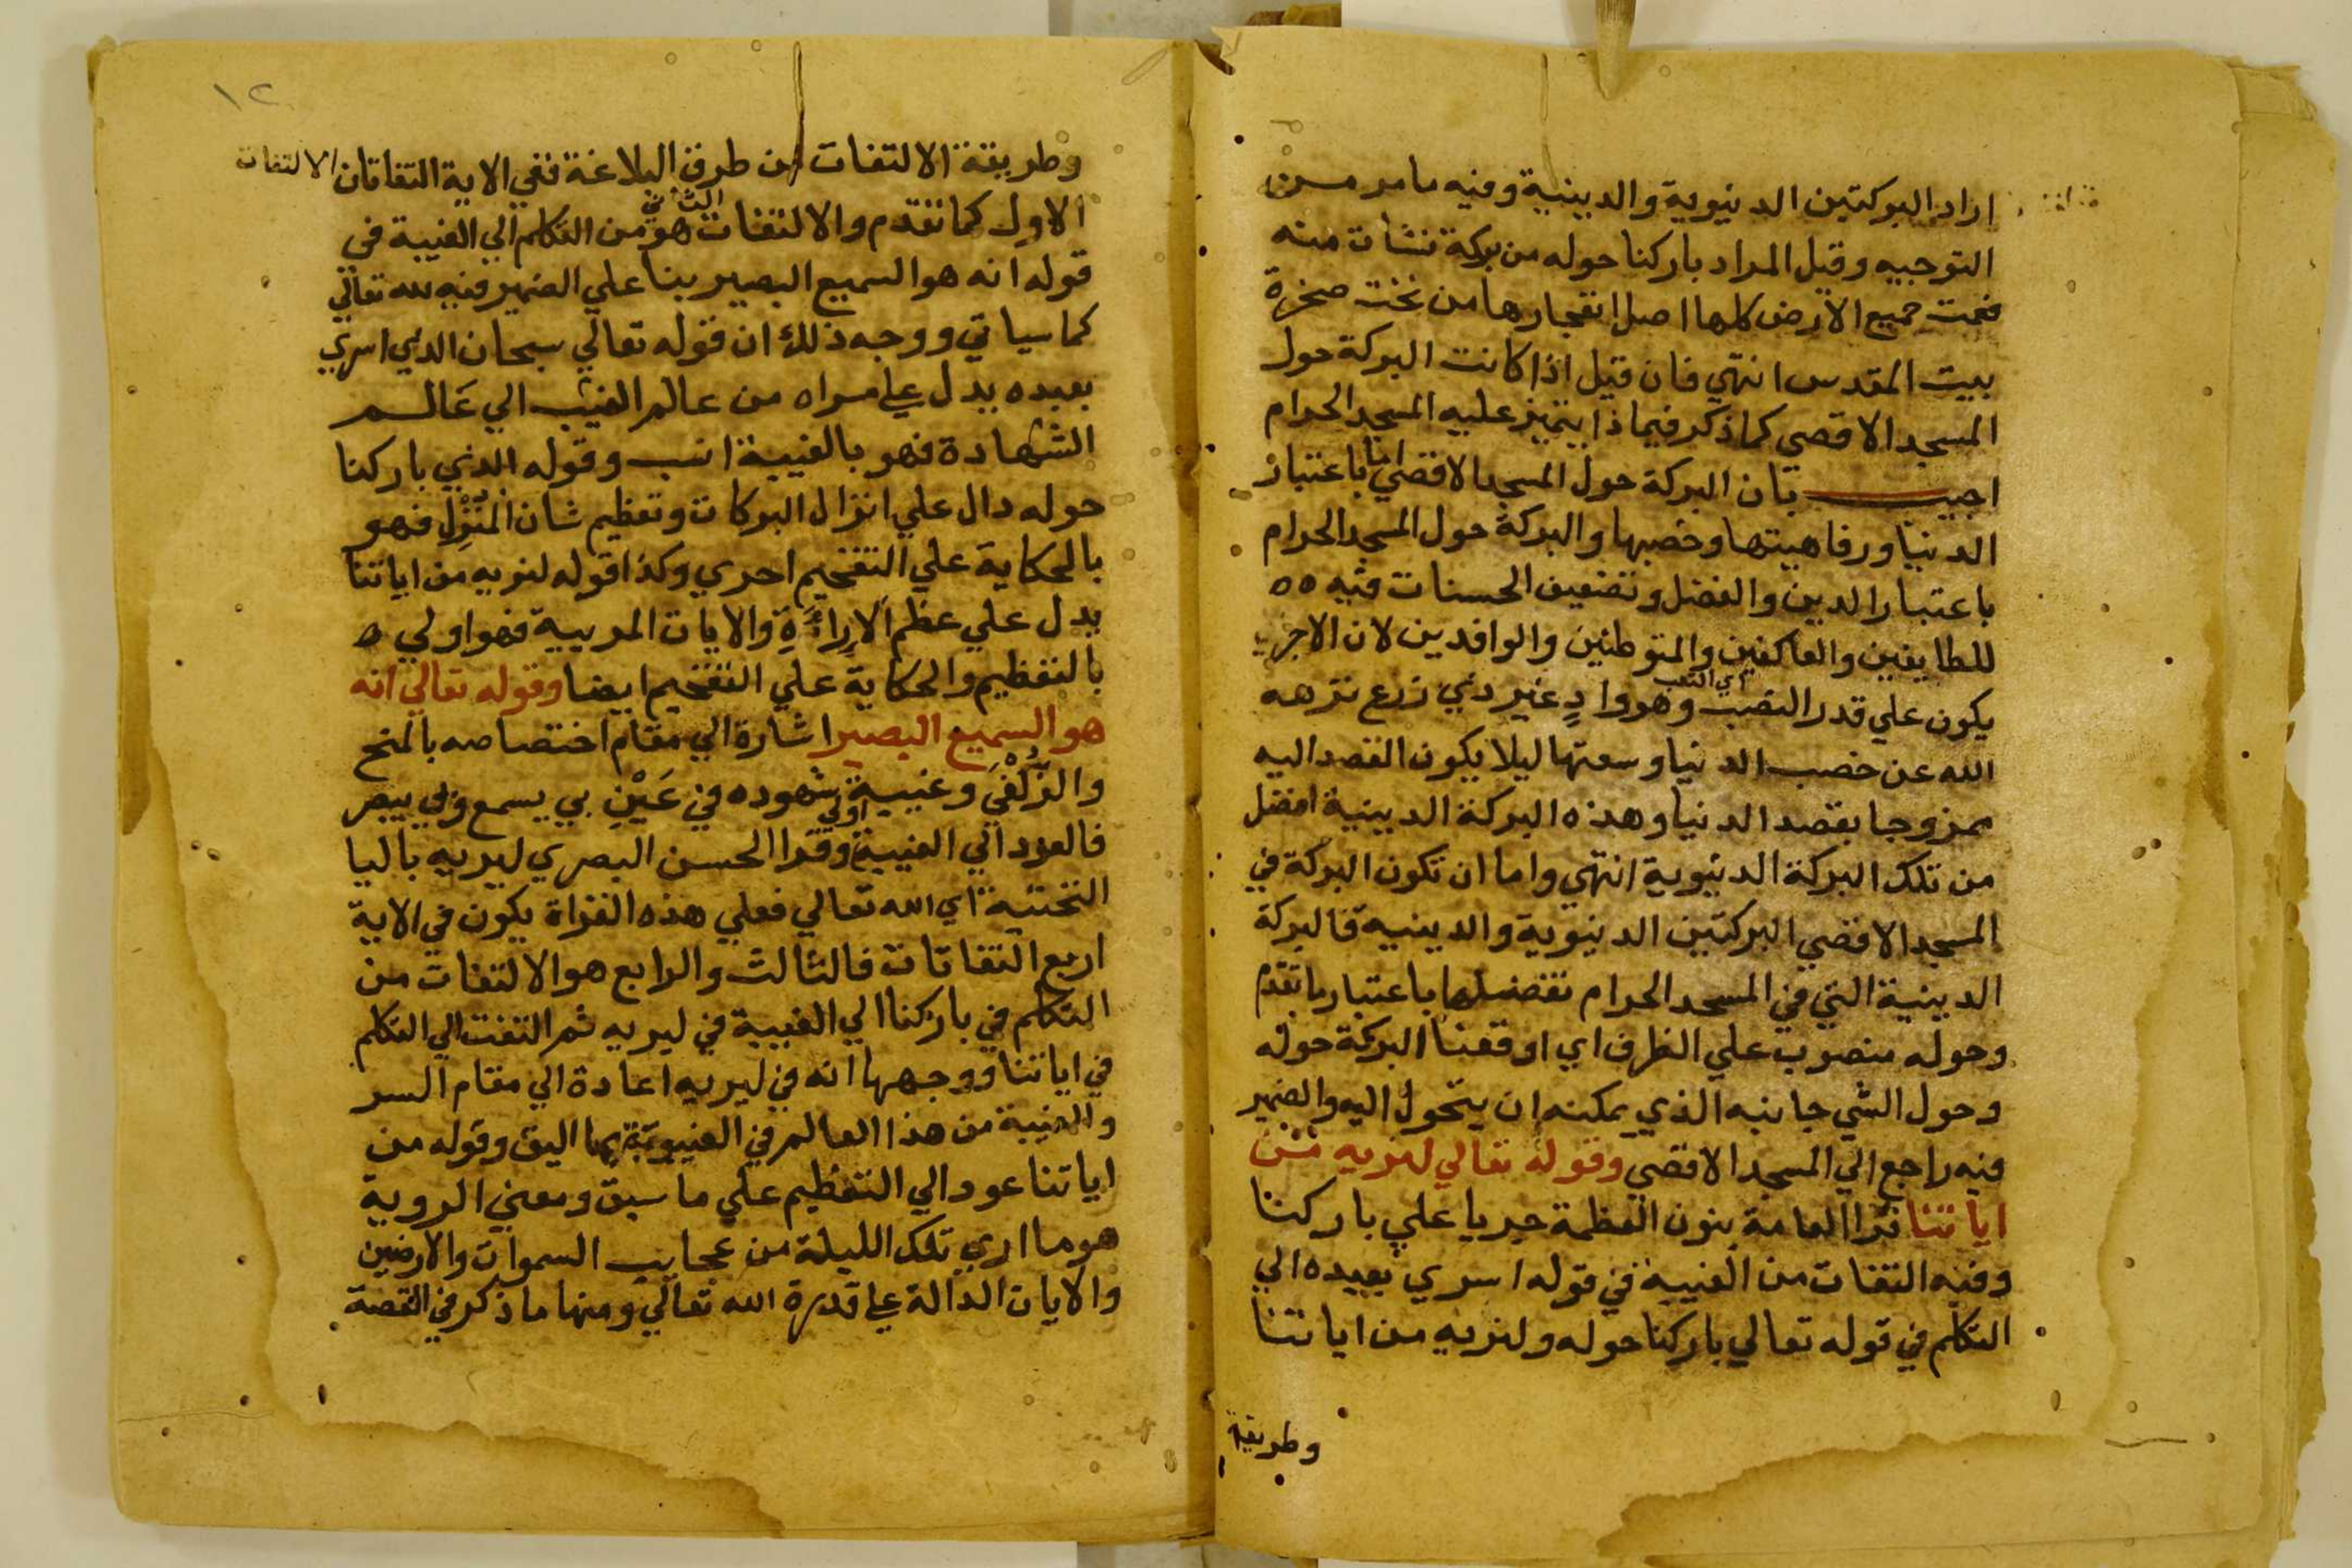 اراد البركتين الدنيوية والدينية وفيه ما مر من
التوجيه وقيل المراد باركنا حوله من بركة نشات منه
فعمت جميع الارض كلها اصل انفجارها من تحت صخرة
بيت المقدس انتهي فان قيل اذا كانت البركة حول
المسجد الاقصي كما ذكر فيما ذا يتميز عليه المسجد الحرام
اجيب بان البركة حول المسجد الاقصي انما باعتبار
الدنيا ورفاهيتها وخصبها والبركة حول المسجد الحرام
باعتبار الدين والفضل وتضعيف الحسنات فيه ٥٥
للطايفين والعاكفين والمتوطنين والوافدين لان الاجر
يكون علي قدر النصب اي التعب وهو وادٍ غير ذي زرع نزهه
الله عن خصب الدنيا وسعتها ليلا يكون القصد اليه
ممزوجا بقصد الدنيا وهذه البركة الدينية افضل
من تلك البركة الدنيوية انتهي واما ان تكون البركة في
المسجد الاقصي البركتين الدنيوية والدينية فالبركة
الدينية التي في المسجد الحرام تفضلها باعتبار ما تقدم
وحوله منصوب علي الظرف اي اوقعنا البركة حوله
وحول الشي جانبه الذي يمكنه ان يتحول اليه والضمير
فيه راجع الي المسجد الاقصي وقوله تعالي لنريه من
اياتنا قرا العامة بنون العظمة جريا علي باركنا
وفيه التفات من الغيبة في قوله اسري بعبده الي
التكلم في قوله تعالي باركنا حوله ولنريه من اياتنا
وطريقة
١٢
وطريقة الالتفات من طرق البلاغة ففي الاية التفاتان الالتفات
الاول كما تقدم والالتفات الثاني هو من التكلم الي الغيبة في
قوله انه هو السميع البصير بنا علي الضمير فيه لله تعالي
كما سياتي ووجه ذلك ان قوله تعالي سبحان الذي اسري
بعبده يدل علي مسراه من عالم الغيب الي عَالم
الشهادة فهو بالغيبة انسب وقوله الذي باركنا
حوله دال علي انزال البركات وتعظيم شان المُنْزِل فهو
بالحكاية علي التفخيم احري وكذا قوله لنريه من اياتنا
يدل علي عظم الاراءَةِ والايات المريية فهو اولي ٥
بالتعظيم والحكاية علي التفخيم ايضا وقوله تعالي انه
هو السميع البصير اشارة الي مقام اختصاصه بالمنح
والزُّلْفَي وغيبية شهوده في عَيْنِ بي يسمع وبي يبصر
فالعود الي الغيبية اولي وقرا الحسن البصري ليريه باليا
التحتية اي الله تعالي فعلي هذه القراة يكون في الاية
اربع التفاتات فالثالث والرابع هو الالتفات من
التكلم في باركنا الي الغيبية في ليريه ثم التفت الي التكلم
في اياتنا ووجهها انه في ليريه اعادة الي مقام السر
والغيبة من هذا العالم في الغيبوبة بها اليق وقوله من
اياتنا عود الي التعظيم علي ما سبق ومعني الروية
هو ما اري تلك الليلة من عجايب السموات والارضين
والايات الدالة علي قدرة الله تعالي ومنها ما ذكر في القصة